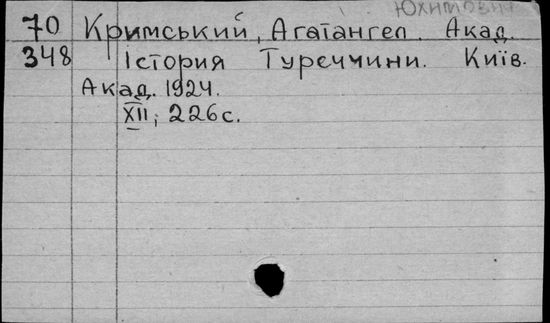 Юхимович
70 Кримський, Агатангел. Акад.
348 Істория Туреччини. Київ.
Акад. 1924.
XII; 226 с.